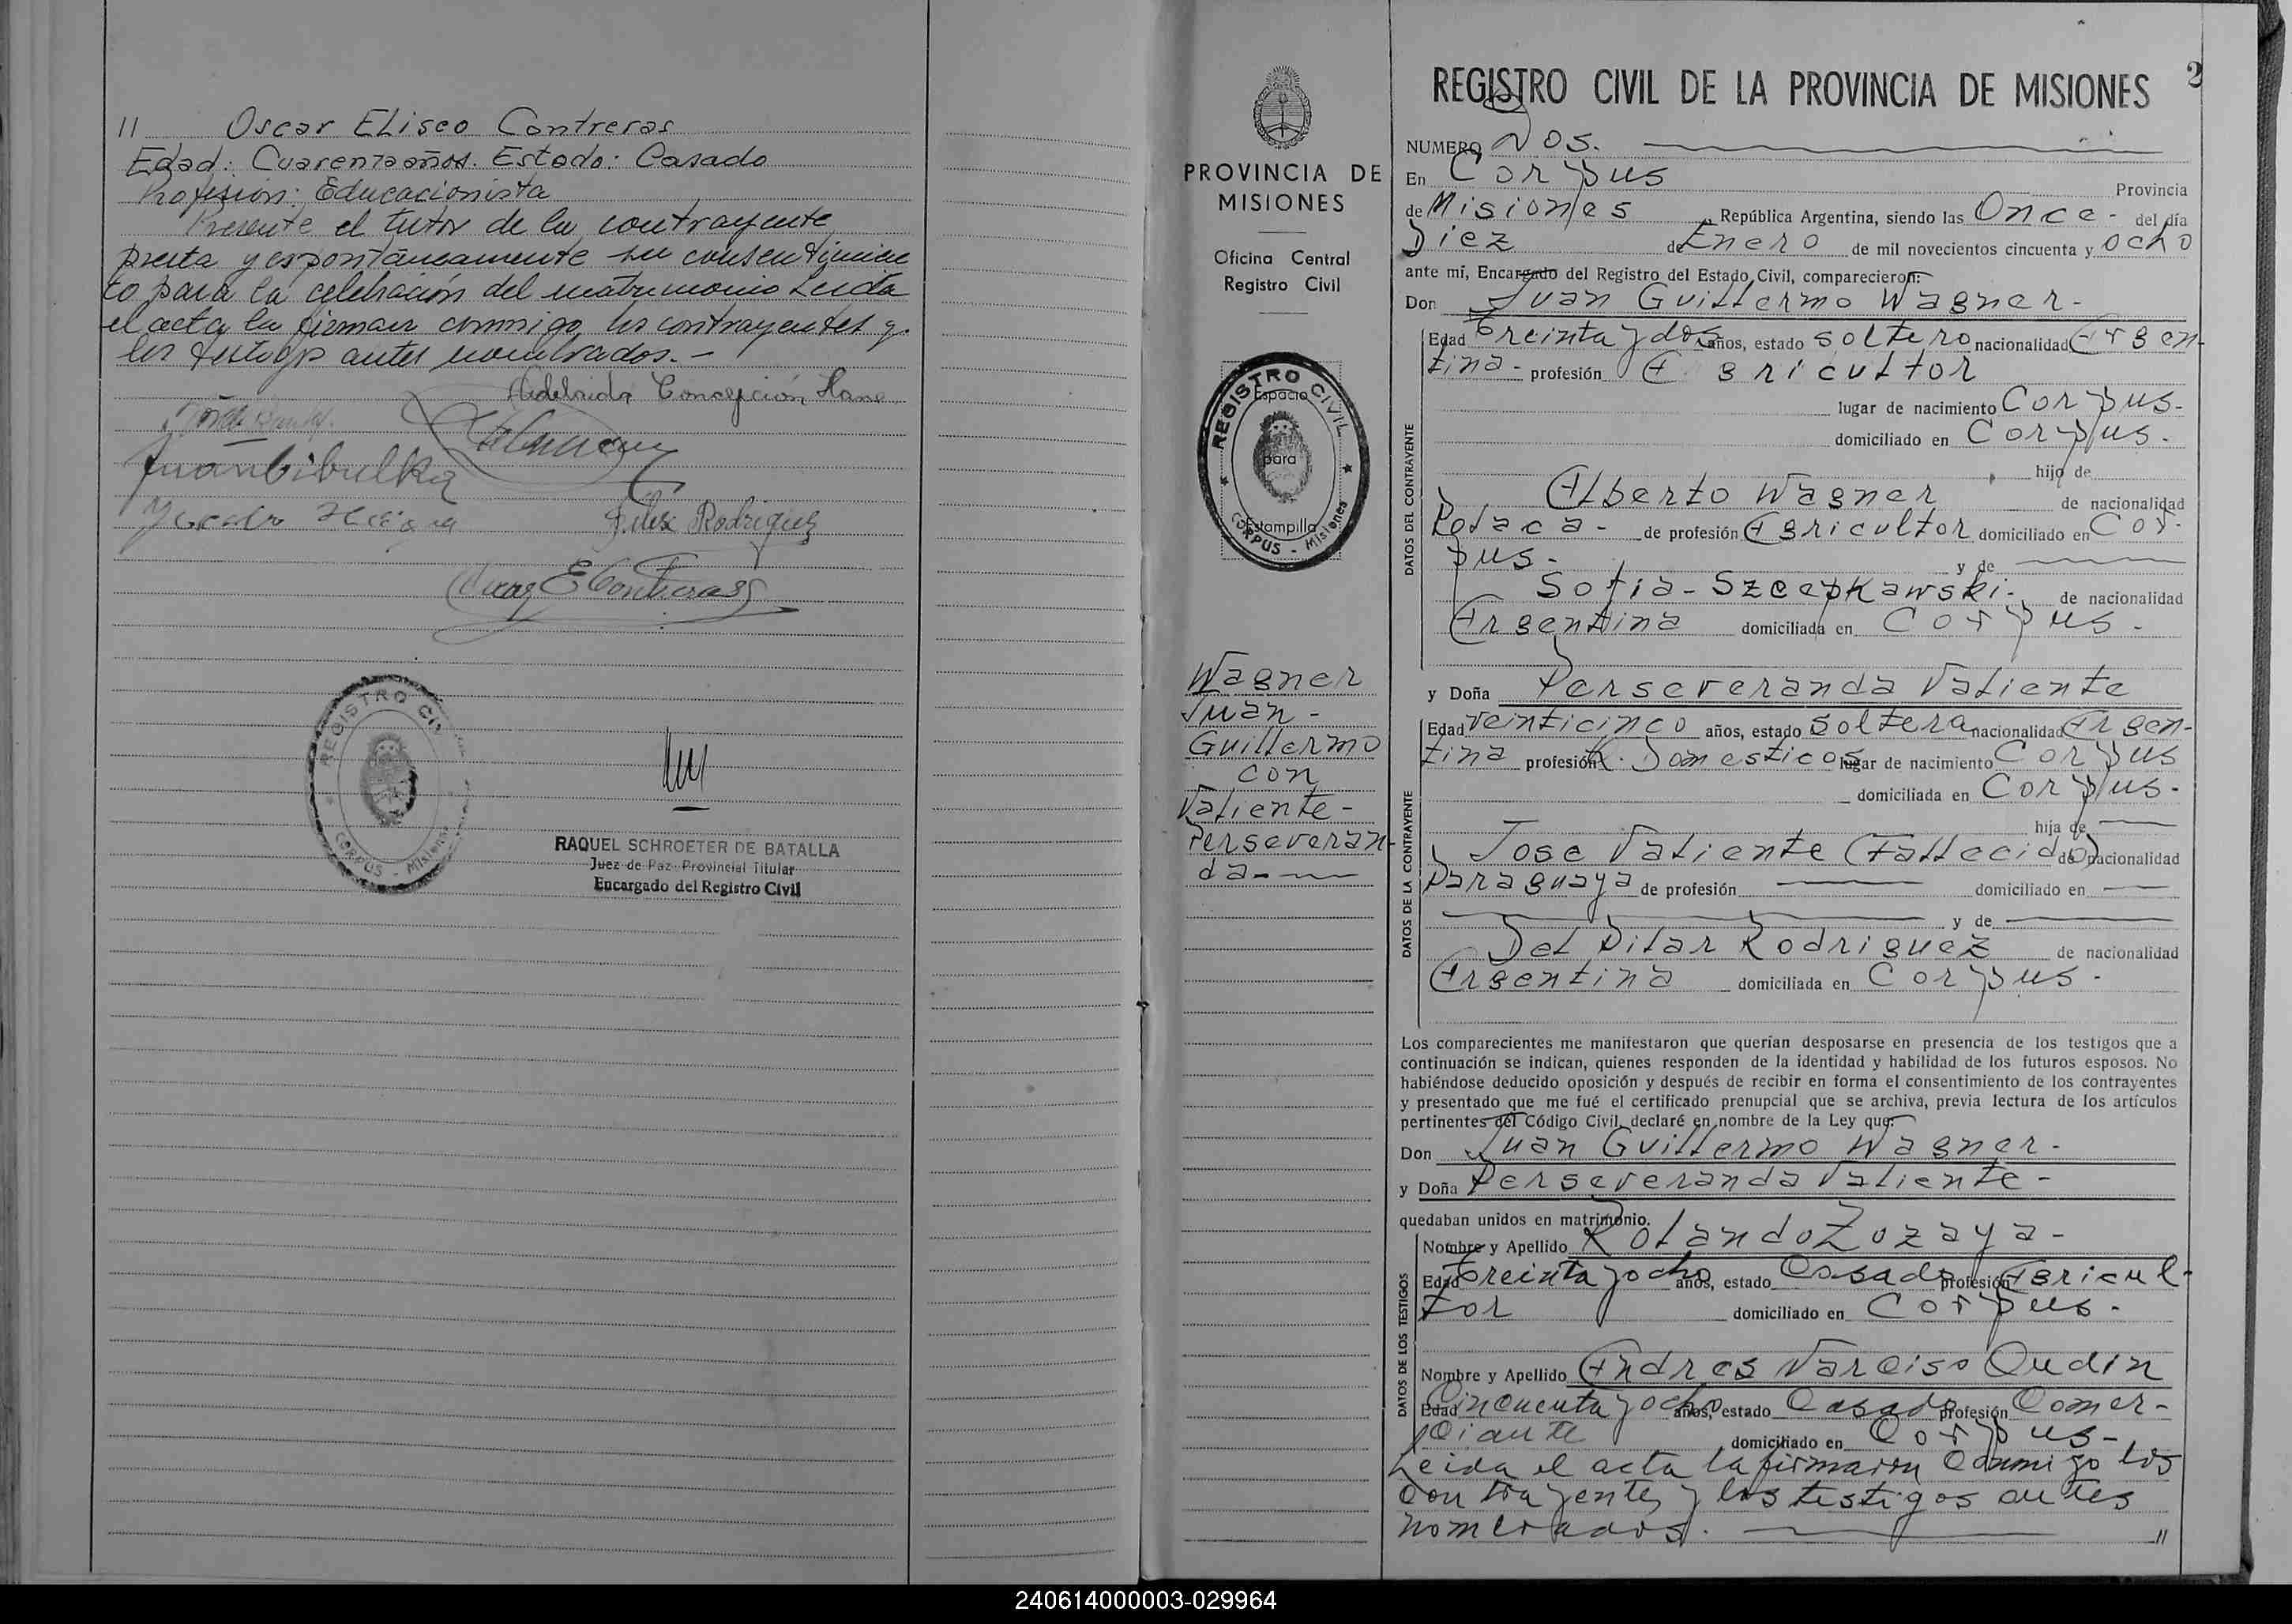 11 Oscar Eliseo Contreras
Edad: Cuarenta años. Estado: Casado
Profesión: Educacionista
Presente el tutor de la contrayente
presta y espontáneamente su consentimien
to para la celebración del matrimonio Leida
el acta la firman conmigo, los contrayentes y
los testigos antes nombrados.-
Adelaida Concepción
Juan Cibulka
Felix Rodriguez
Oscar E Contreras
REGISTRO CIVIL
CORPUS - Misiones
RAQUEL SCHROETER DE BATALLA
Juez de Paz Provincial Titular
Encargado del Registro Civil
PROVINCIA DE
MISIONES
Oficina Central
Registro Civil
REGISTRO CIVIL
Espacio
para
Estampilla
CORPUS - Misiones
Wagner
Juan -
Guillermo
con
Valiente -
Perseveran-
da-
2
REGISTRO CIVIL DE LA PROVINCIA DE MISIONES
NUMERO Dos.
En Corpus Provincia
de Misiones, República Argentina, siendo las Once - del día
Diez de Enero de mil novecientos cincuenta y ocho
ante mí, Encargado del Registro del Estado Civil, comparecieron:
Don Juan Guillermo Wagner-
DATOS DEL CONTRAYENTE
Edad Treinta y dos años, estado soltero nacionalidad Argen-
tina - profesión Agricultor
lugar de nacimiento Corpus-
domiciliado en Corpus -
hijo de
Alberto Wagner de nacionalidad
Polaca - de profesión Agricultor domiciliado en Cor-
pus - y de
Sofia - Szcepkawski - de nacionalidad
Argentina domiciliada en Corpus -
y Doña Perseveranda Valiente
DATOS DE LA CONTRAYENTE
Edad Veinticinco años, estado soltera nacionalidad Argen-
tina profesión Q. Domesticos lugar de nacimiento Corpus
domiciliada en Corpus-
hija de
Jose Valiente (Fallecido) de nacionalidad
Paraguaya de profesión domiciliado en
y de
Del Pilar Rodriguez de nacionalidad
Argentina domiciliada en Corpus -
Los comparecientes me manifestaron que querían desposarse en presencia de los testigos que a
continuación se indican, quienes responden de la identidad y habilidad de los futuros esposos. No
habiéndose deducido oposición y después de recibir en forma el consentimiento de los contrayentes
y presentado que me fué el certificado prenupcial que se archiva, previa lectura de los artículos
pertinentes del Código Civil, declaré en nombre de la Ley que:
Don Juan Guillermo Wagner-
y Doña Perseveranda Valiente-
quedaban unidos en matrimonio.
DATOS DE LOS TESTIGOS
Nombre y Apellido Rolando Zozaya-
Edad Treinta y ocho años, estado Casado profesión Agricul-
tor domiciliado en Corpus-
Nombre y Apellido Andres Narciso Oudin
Edad Cincuenta y ocho años, estado Casado profesión Comer-
ciante domiciliado en Corpus-
Leida el acta la firmaron conmigo los
contrayentes y los testigos antes
nombrados. 11
240614000003-029964